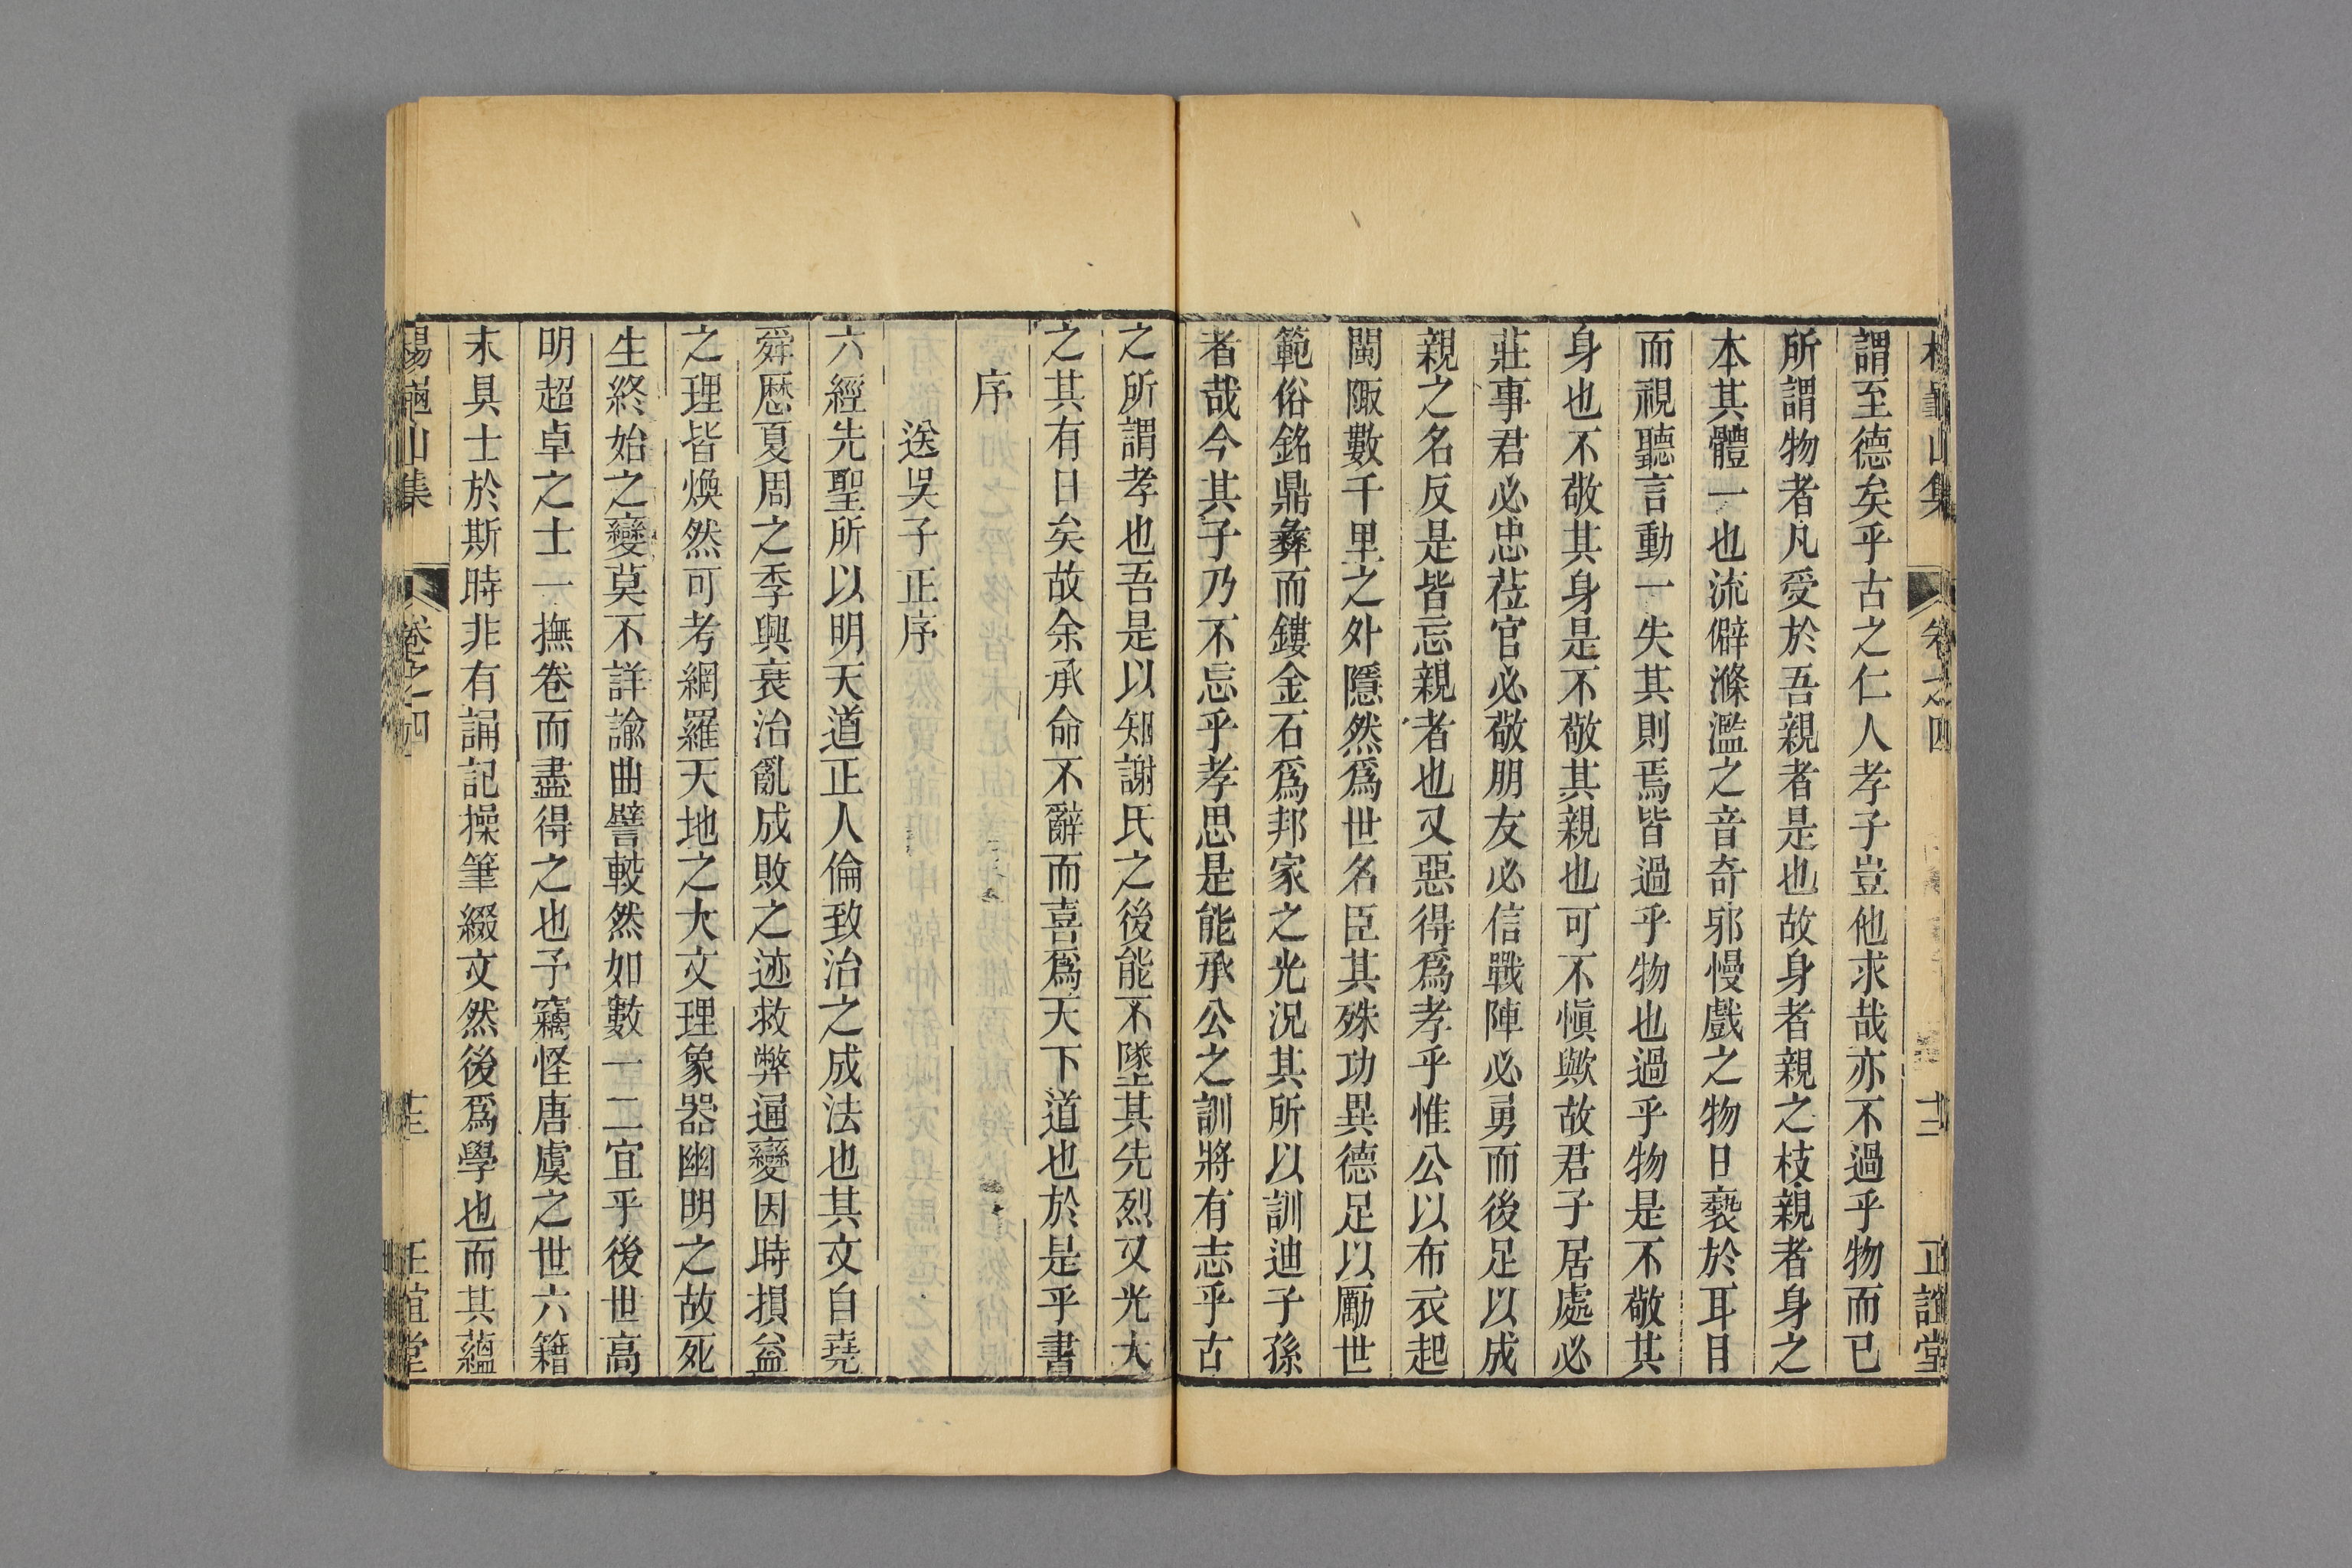 楊龜山集 卷之四 十二 正誼堂
謂至德矣乎古之仁人孝子豈他求哉亦不過乎物而已
所謂物者凡受於吾親者是也故身者親之枝親者身之
本其體一也流僻滌濫之音奇邪慢戲之物日褻於耳目
而視聽言動一失其則焉皆過乎物也過乎物是不敬其
身也不敬其身是不敬其親也可不愼歟故君子居處必
莊事君必忠莅官必敬朋友必信戰陣必勇而後足以成
親之名反是皆忘親者也又惡得爲孝乎惟公以布衣起
閩陬數千里之外隱然爲世名臣其殊功異德足以勵世
範俗銘鼎彝而鏤金石爲邦家之光況其所以訓迪子孫
者哉今其子乃不忘乎孝思是能承公之訓將有志乎古
之所謂孝也吾是以知謝氏之後能不墜其先烈又光大
之其有日矣故余承命不辭而喜爲天下道也於是乎書
序
送吳子正序
六經先聖所以明天道正人倫致治之成法也其文自堯
舜歷夏周之季興衰治亂成敗之迹救弊通變因時損益
之理皆煥然可考網羅天地之大文理象器幽明之故死
生終始之變莫不詳諭曲譬較然如數一二宜乎後世高
明超卓之士一撫卷而盡得之也予竊怪唐虞之世六籍
未具士於斯時非有誦記操筆綴文然後爲學也而其蘊
楊龜山集 卷之四 正誼堂